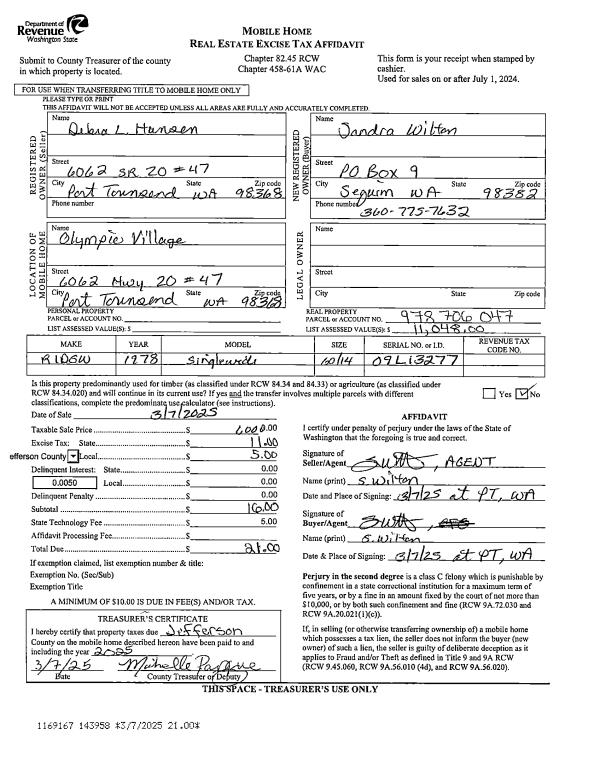 Department of
Revenue
Washington State
MOBILE HOME
REAL ESTATE EXCISE TAX AFFIDAVIT
Submit to County Treasurer of the county
in which property is located.
Chapter 82.45 RCW
Chapter 458-61A WAC
This form is your receipt when stamped by
cashier.
Used for sales on or after July 1, 2024.
FOR USE WHEN TRANSFERRING TITLE TO MOBILE HOME ONLY
PLEASE TYPE OR PRINT
THIS AFFIDAVIT WILL NOT BE ACCEPTED UNLESS ALL AREAS ARE FULLY AND ACCURATELY COMPLETED.
REGISTERED
OWNER (Seller)
Name
Debra L. Hansen
Street
6062 SR 20 #47
City State Zip code
Port Townsend WA 98368
Phone number
NEW REGISTERED
OWNER (Buyer)
Name
Sandra Wilton
Street
PO Box 9
City State Zip code
Sequim WA 98382
Phone number
360-775-7632
LOCATION OF
MOBILE HOME
Name
Olympic Village
Street
6062 Hwy 20 #47
City State Zip code
Port Townsend WA 98368
LEGAL OWNER
Name
Street
City State Zip code
PERSONAL PROPERTY
PARCEL or ACCOUNT NO.
LIST ASSESSED VALUE(S): $
REAL PROPERTY
PARCEL or ACCOUNT NO. 978 706 047
LIST ASSESSED VALUE(S): $ 11,048.00
MAKE YEAR MODEL SIZE SERIAL NO. or I.D. REVENUE TAX CODE NO.
RIDGW 1978 Singlewide 60/14 09L13277
Is this property predominantly used for timber (as classified under RCW 84.34 and 84.33) or agriculture (as classified under
RCW 84.34.020) and will continue in its current use? If yes and the transfer involves multiple parcels with different
classifications, complete the predominate use calculator (see instructions).
Yes No
Date of Sale 3/7/2025
Taxable Sale Price $ 1,000.00
Excise Tax: State $ 11.00
efferson County Local $ 5.00
Delinquent Interest: State $ 0.00
0.0050 Local $ 0.00
Delinquent Penalty $ 0.00
Subtotal $ 16.00
State Technology Fee $ 5.00
Affidavit Processing Fee $
Total Due $ 21.00
If exemption claimed, list exemption number & title:
Exemption No. (Sec/Sub)
Exemption Title
A MINIMUM OF $10.00 IS DUE IN FEE(S) AND/OR TAX.
TREASURER'S CERTIFICATE
I hereby certify that property taxes due Jefferson
County on the mobile home described hereon have been paid to and
including the year 2025
3/7/25 Michelle
Date County Treasurer or Deputy
AFFIDAVIT
I certify under penalty of perjury under the laws of the State of
Washington that the foregoing is true and correct.
Signature of
Seller/Agent AGENT
Name (print) S. Wilton
Date and Place of Signing: 3/7/25 at PT, WA
Signature of
Buyer/Agent
Name (print) S. Wilton
Date & Place of Signing: 3/7/25 at PT, WA
Perjury in the second degree is a class C felony which is punishable by
confinement in a state correctional institution for a maximum term of
five years, or by a fine in an amount fixed by the court of not more than
$10,000, or by both such confinement and fine (RCW 9A.72.030 and
RCW 9A.20.021(1)(c)).
If, in selling (or otherwise transferring ownership of) a mobile home
which possesses a tax lien, the seller does not inform the buyer (new
owner) of such a lien, the seller is guilty of deliberate deception as it
applies to Fraud and/or Theft as defined in Title 9 and 9A RCW
(RCW 9.45.060, RCW 9A.56.010 (4d), and RCW 9A.56.020).
THIS SPACE - TREASURER'S USE ONLY
1169167 143958 *3/7/2025 21.00*